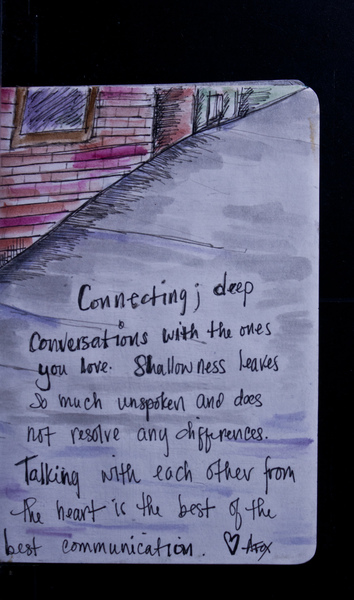 Connecting; deep
Conversations with the ones
you love. Shallowness leaves
so much unspoken and does
not resolve any differences.
Talking with each other from
the heart is the best of the
best communication. ♡-AFox